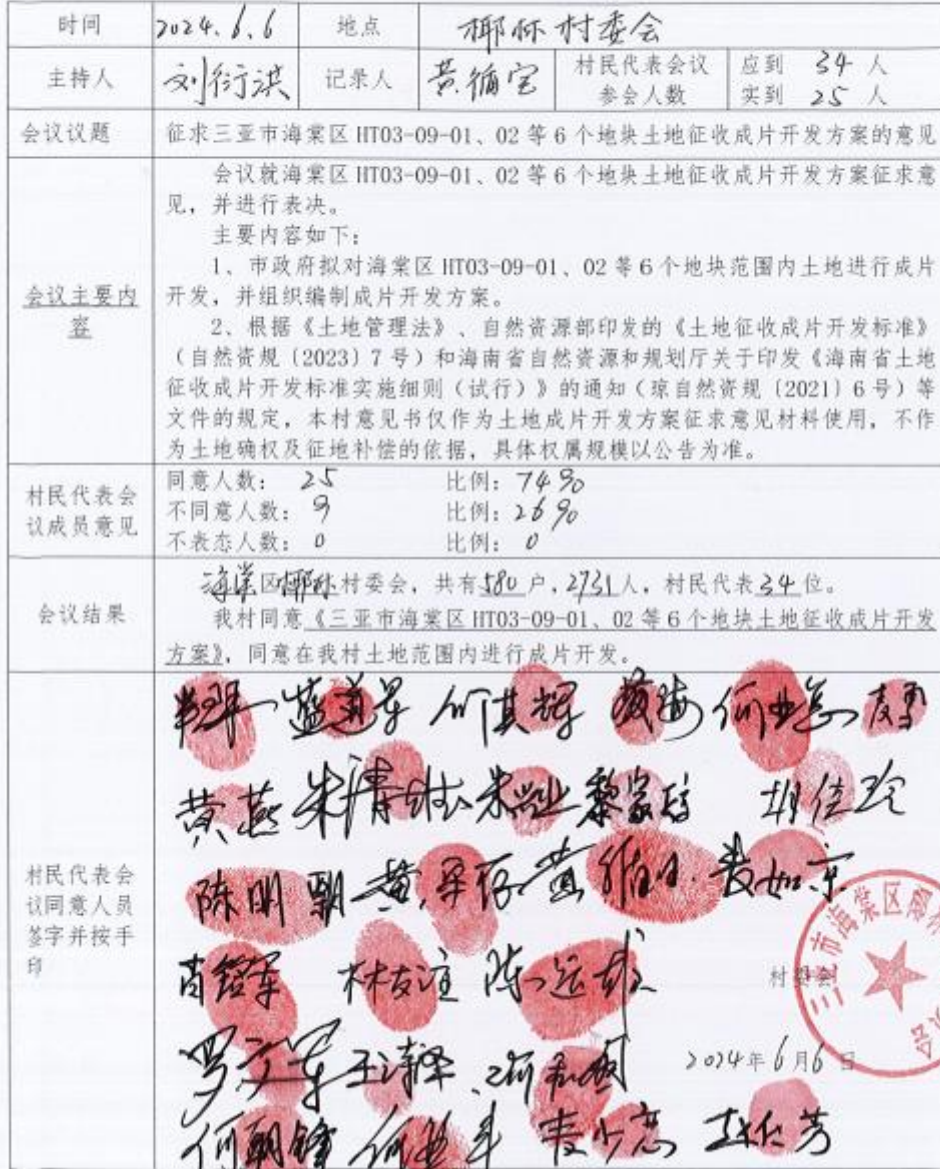 时间 2024.6.6 地点 椰林村委会
主持人 刘衍洪 记录人 黄循宝 村民代表会议参会人数 应到 34 人
实到 25 人
会议议题 征求三亚市海棠区 HT03-09-01、02 等 6 个地块土地征收成片开发方案的意见
会议主要内容
会议就海棠区 HT03-09-01、02 等 6 个地块土地征收成片开发方案征求意
见，并进行表决。
主要内容如下：
1、市政府拟对海棠区 HT03-09-01、02 等 6 个地块范围内土地进行成片
开发，并组织编制成片开发方案。
2、根据《土地管理法》、自然资源部印发的《土地征收成片开发标准》
（自然资规〔2023〕7 号）和海南省自然资源和规划厅关于印发《海南省土地
征收成片开发标准实施细则（试行）》的通知（琼自然资规〔2021〕6 号）等
文件的规定，本村意见书仅作为土地成片开发方案征求意见材料使用，不作
为土地确权及征地补偿的依据，具体权属规模以公告为准。
村民代表会议成员意见
同意人数： 25 比例：74%
不同意人数： 9 比例：26%
不表态人数： 0 比例： 0
会议结果
海棠区椰林村委会，共有580户，2731人，村民代表34位。
我村同意《三亚市海棠区 HT03-09-01、02 等 6 个地块土地征收成片开发
方案》，同意在我村土地范围内进行成片开发。
村民代表会议同意人员签字并按手印
蓝 何其辉 黄海
黄燕 朱 黎家 胡佳玲
陈明
林友 陈运
村委会
三亚市海棠区椰
罗 王
2024年6月6日
何朝锋 何 麦少 仁芳